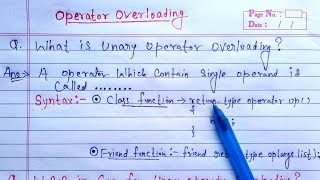 Operator Overloading
Page No.:
Date: / /
Q. What is Unary Operator Overloading?
Ans→ A operator which contain single operand is
called ........
Syntax:- • Class function → return-type operator op()
{
}
• Friend function:- friend type op(args list);